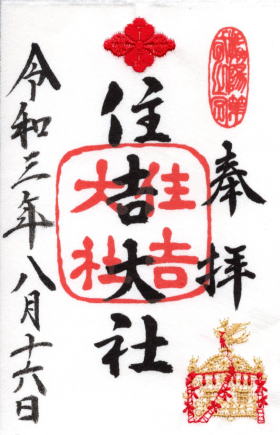 奉拝
住吉大社
住吉大社
令和三年八月十六日